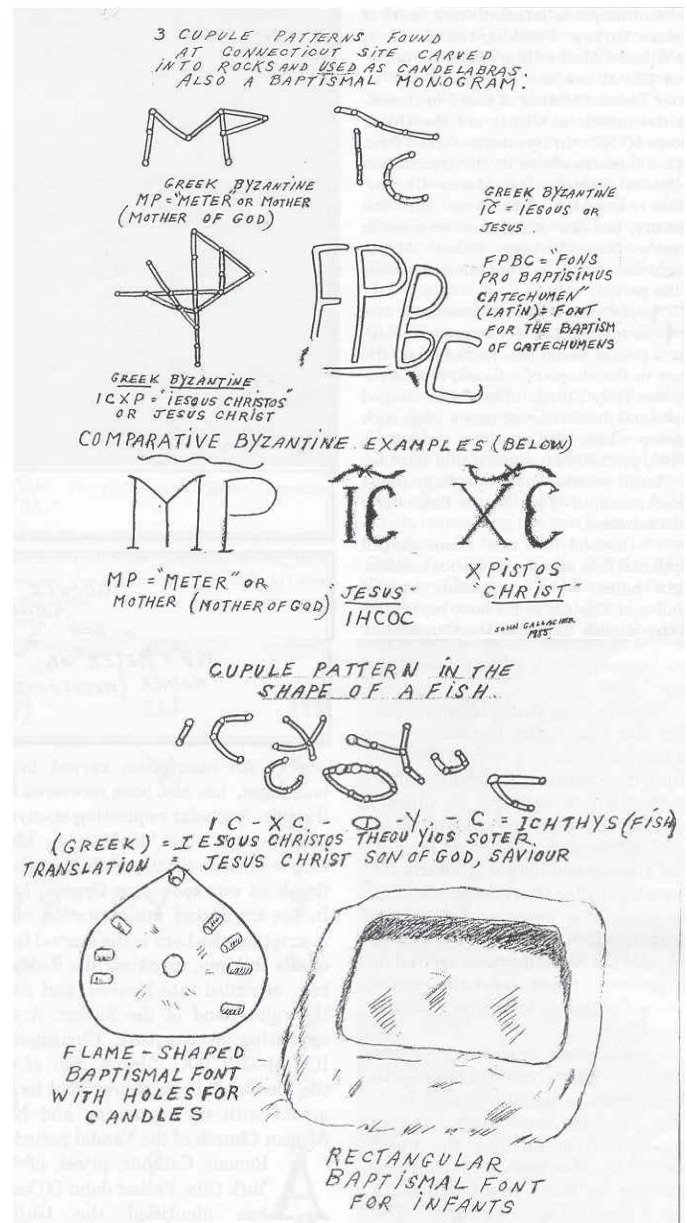 3 CUPULE PATTERNS FOUND
AT CONNECTICUT SITE CARVED
INTO ROCKS AND USED AS CANDELABRAS.
ALSO A BAPTISMAL MONOGRAM:
MP
IC
GREEK BYZANTINE
MP = "METER" OR MOTHER
(MOTHER OF GOD)
GREEK BYZANTINE
IC = IESOUS OR
JESUS.
FPBC
FPBC = "FONS
PRO BAPTISIMUS
CATECHUMEN"
(LATIN) = FONT
FOR THE BAPTISM
OF CATECHUMENS
GREEK BYZANTINE
ICXP = "IESOUS CHRISTOS"
OR JESUS CHRIST
COMPARATIVE BYZANTINE EXAMPLES (BELOW)
MP
IC XC
MP = "METER" OR
MOTHER (MOTHER OF GOD)
"JESUS"
IHCOC
XPISTOS
CHRIST"
JOHN GALLAGHER
1985
CUPULE PATTERN IN THE
SHAPE OF A FISH
IC XC Θ Y C
IC - XC. - Θ - Y. - C = ICHTHYS (FISH)
(GREEK) = IESOUS CHRISTOS THEOU YIOS SOTER.
TRANSLATION = JESUS CHRIST SON OF GOD, SAVIOUR
FLAME-SHAPED
BAPTISMAL FONT
WITH HOLES FOR
CANDLES
RECTANGULAR
BAPTISMAL FONT
FOR INFANTS